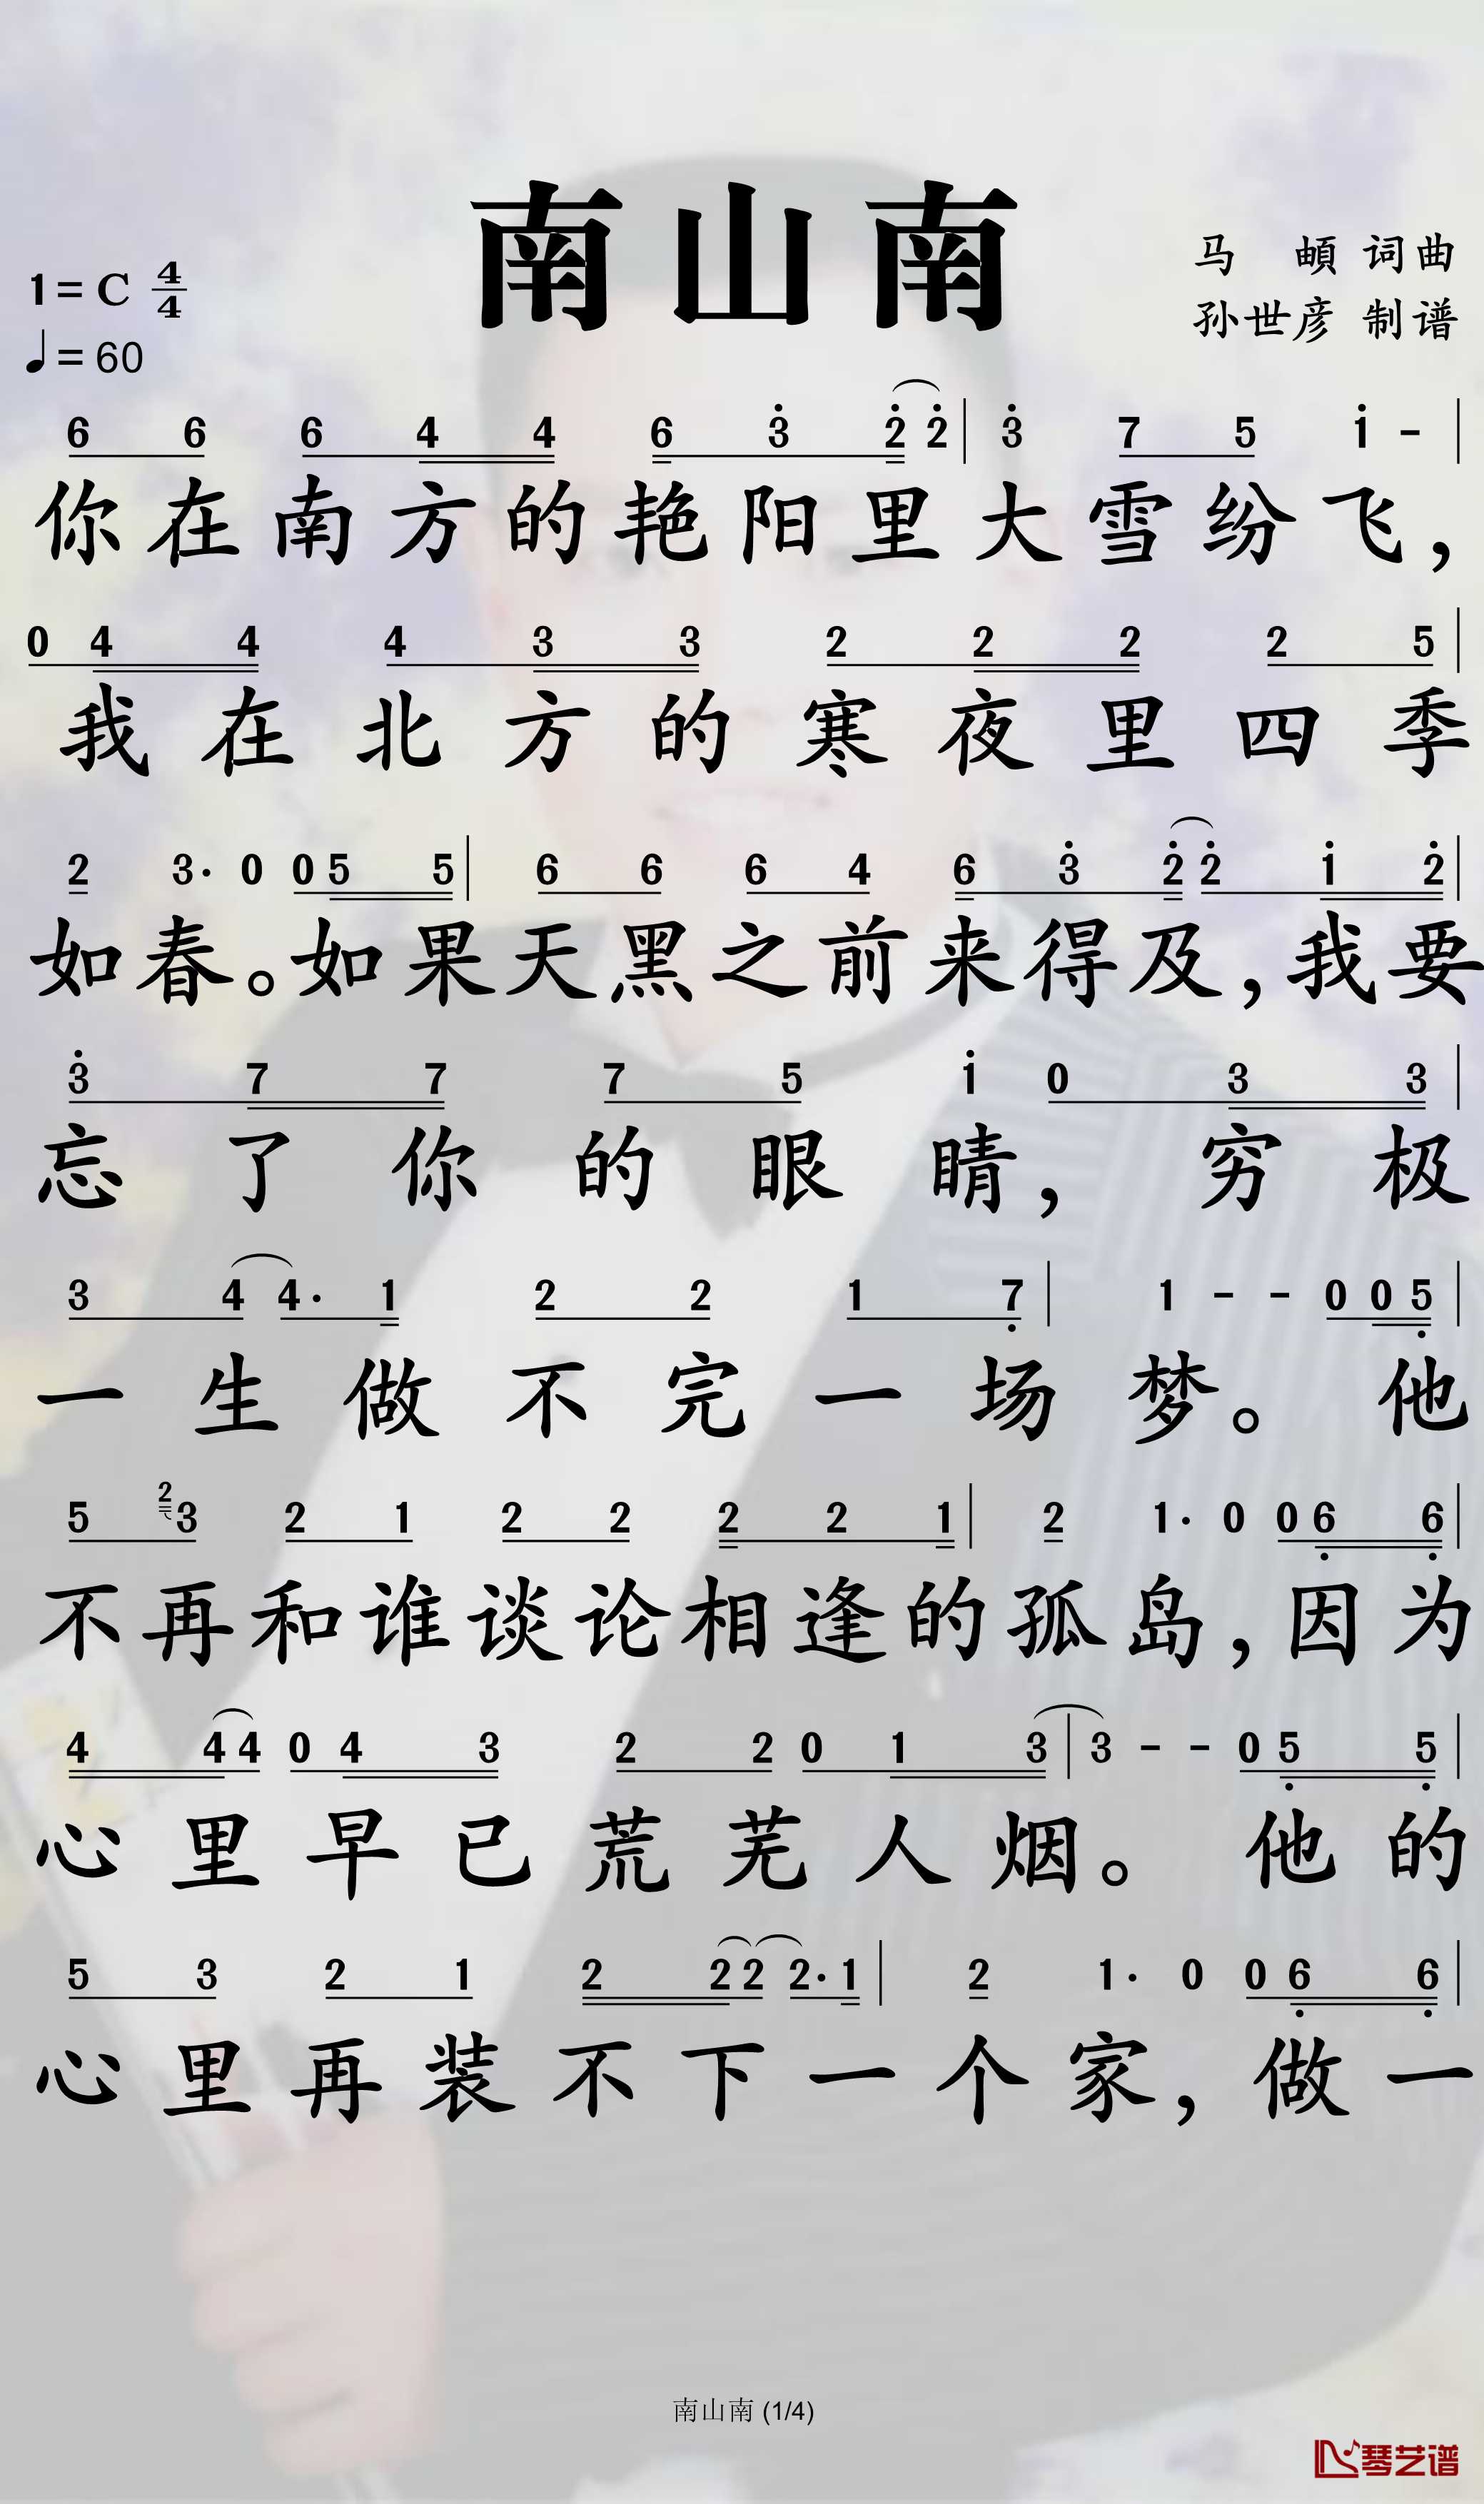 南山南
1=C 4/4
♩=60
马 頔 词曲
孙世彦 制谱
6 6 6 4 4 6 3̇ 2̇ 2̇ | 3̇ 7 5 1̇ - |
你在南方的艳阳里大雪纷飞，
0 4 4 4 3 3 2 2 2 2 5 |
我在北方的寒夜里四季
2 3· 0 0 5 5 | 6 6 6 4 6 3̇ 2̇ 2̇ 1̇ 2̇ |
如春。如果天黑之前来得及，我要
3̇ 7 7 7 5 1̇ 0 3 3 |
忘了你的眼睛，穷极
3 4 4· 1 2 2 1 7̣ | 1 - - 0 0 5̣ |
一生做不完一场梦。他
5 2 3 2 1 2 2 2 2 1 | 2 1· 0 0 6̣ 6̣ |
不再和谁谈论相逢的孤岛，因为
4 4 4 0 4 3 2 2 0 1 3 | 3 - - 0 5̣ 5̣ |
心里早已荒芜人烟。他的
5 3 2 1 2 2 2 2· 1 | 2 1· 0 0 6̣ 6̣ |
心里再装不下一个家，做一
南山南 (1/4)
琴艺谱